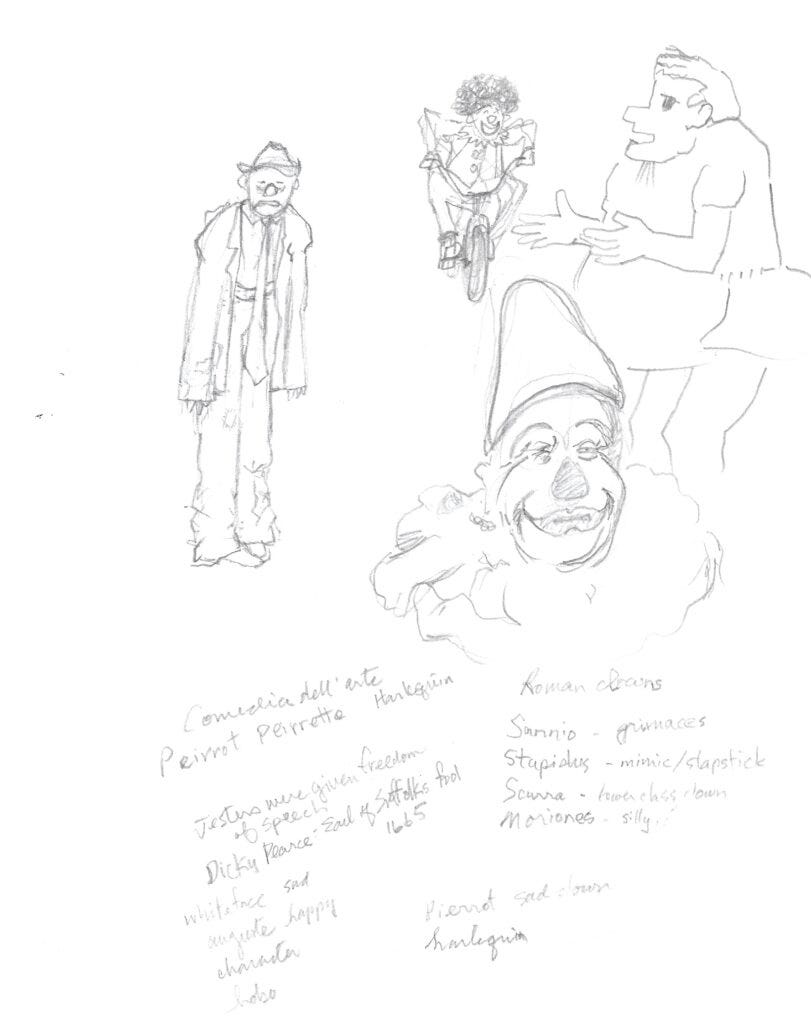 Comedia dell' arte
Peirrot Peirrette Harlequin
Jesters were given freedom
of speech
Dicky Pearce - Earl of Suffolks fool
1665
whiteface sad
auguste happy
character
hobo
Roman clowns
Sannio - grimaces
Stupidus - mimic/slapstick
Scurra - lower class clown
Moriones - silly
Pierrot sad clown
harlequin